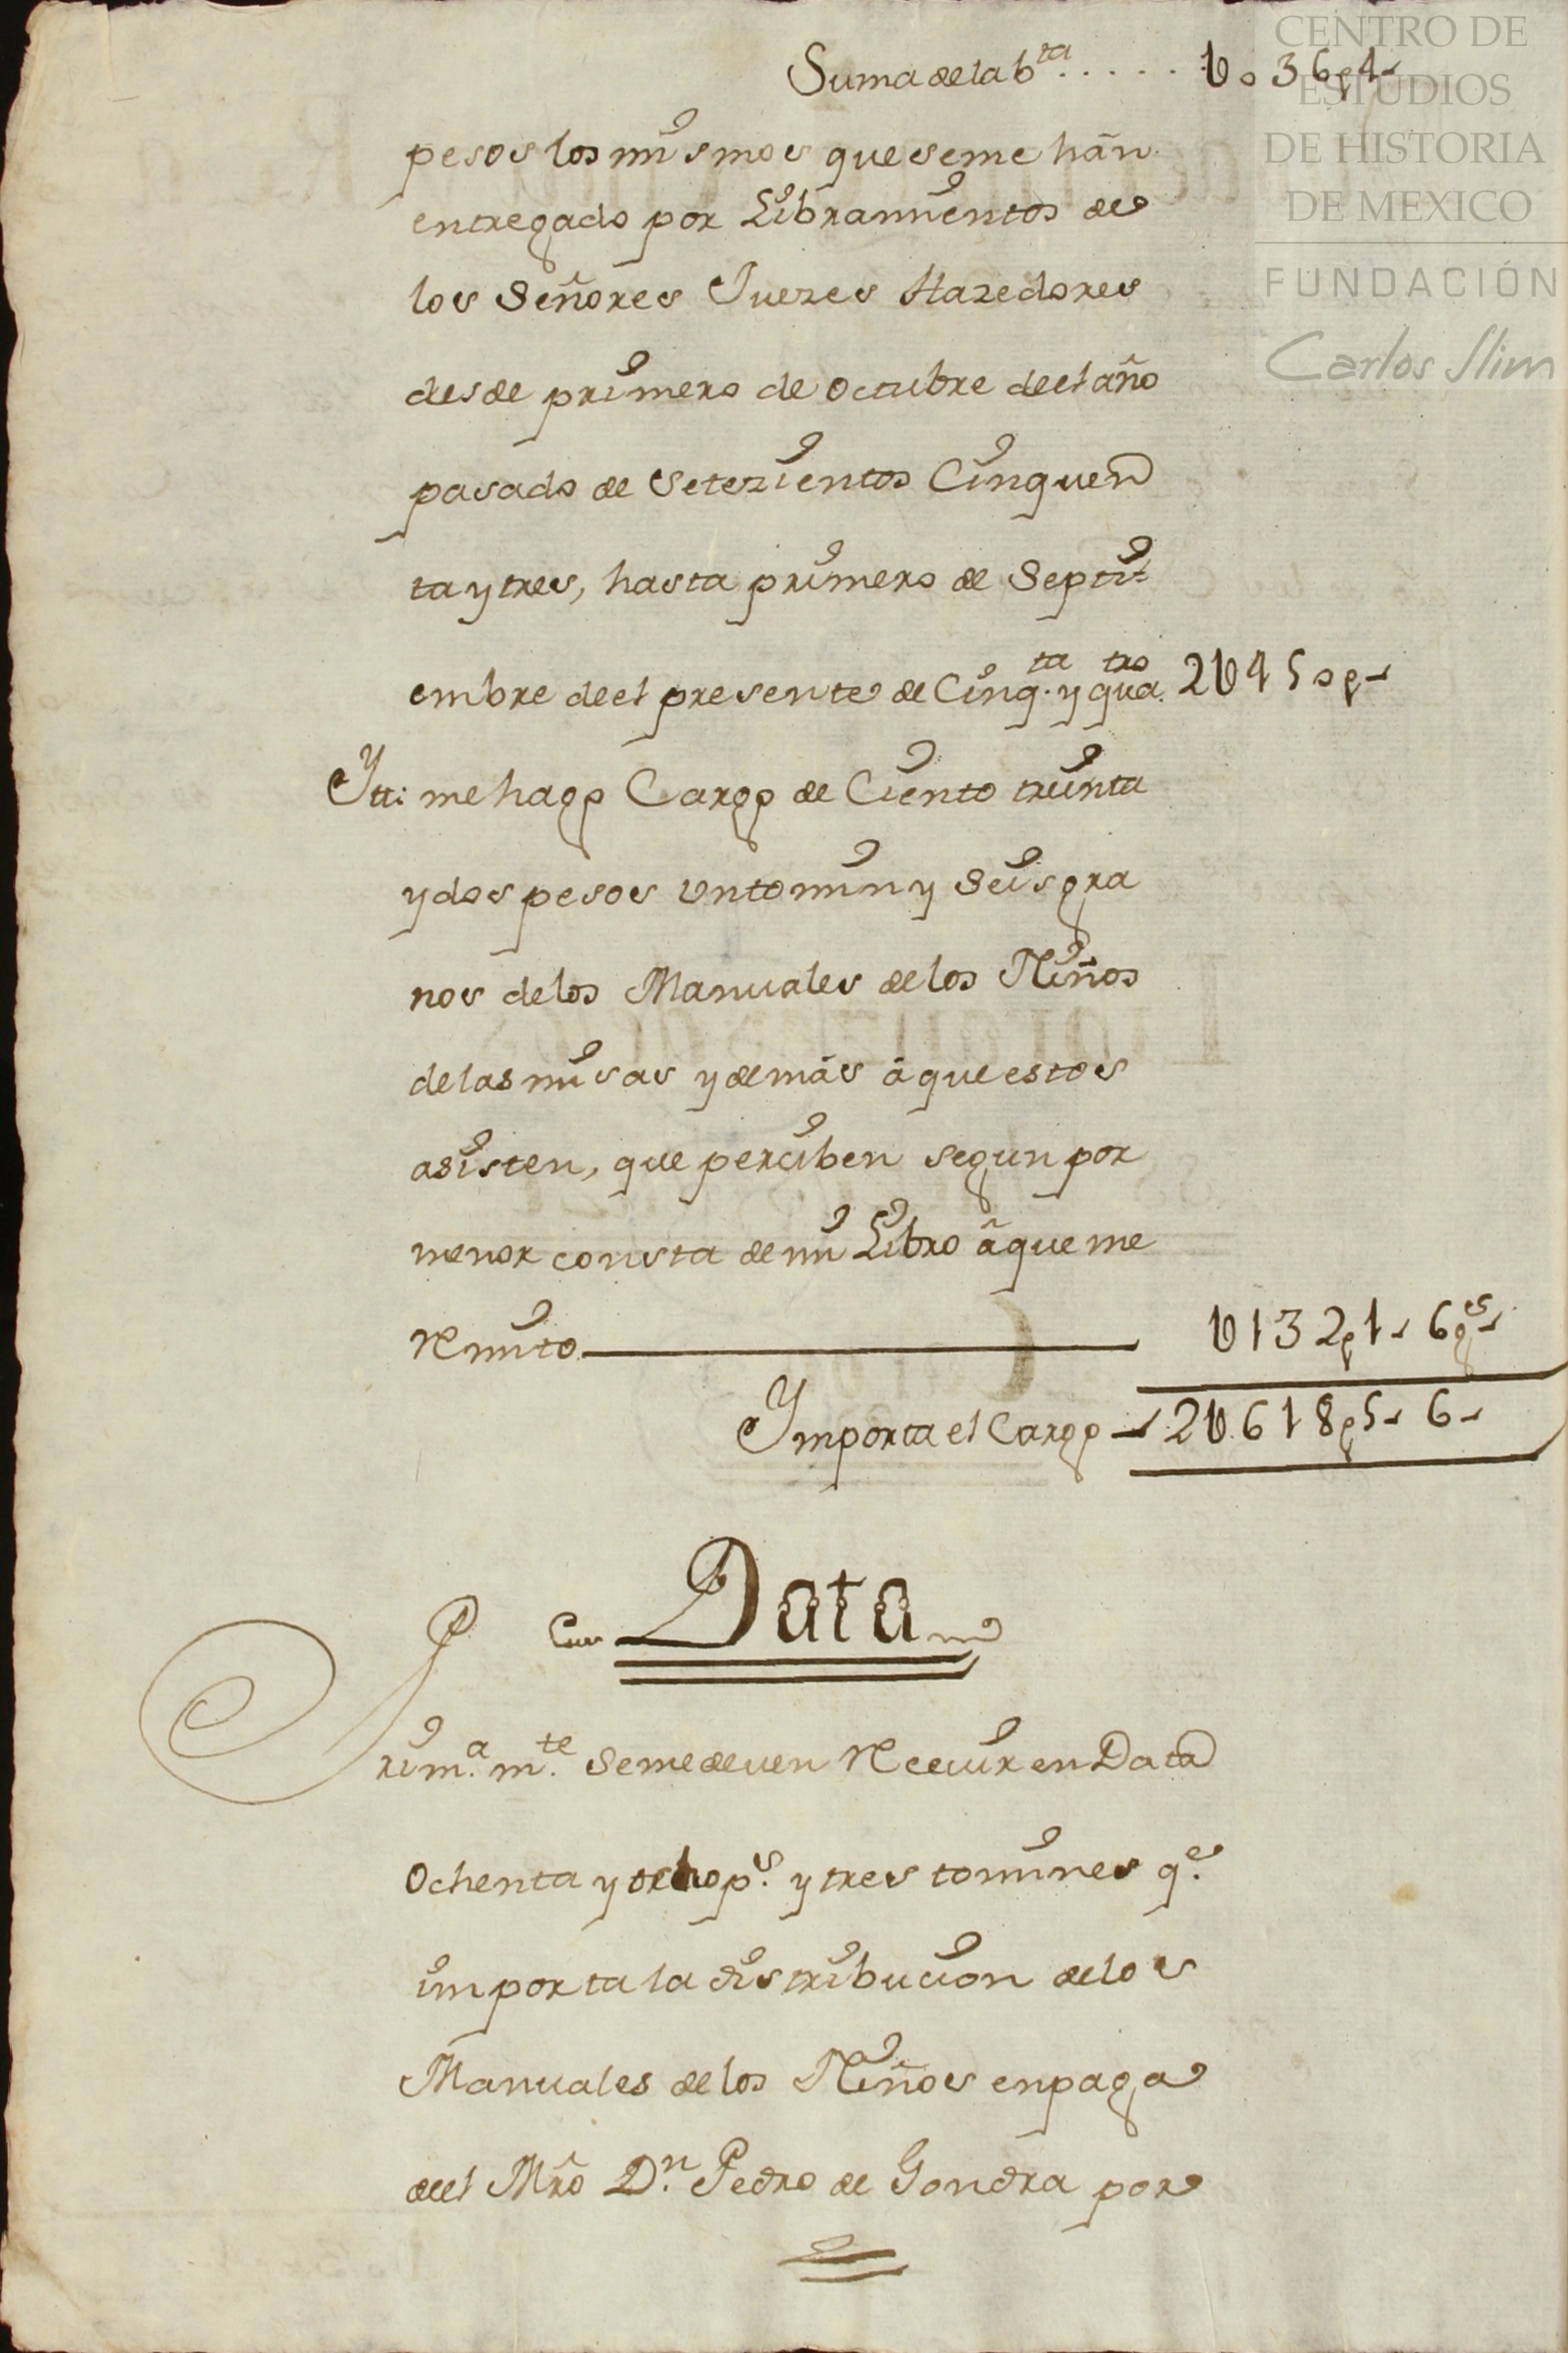 Suma de la b.ta ..... U036p4-
CENTRO DE
ESTUDIOS
DE HISTORIA
DE MEXICO
FUNDACIÓN
Carlos Slim
pesos los mismos que se me hãn
entregado por Libramientos de
los Señores Juezes Hazedores
desde primero de Octubre de el año
pasado de Setezientos Cinquen
ta y tres, hasta primero de Septi-
embre de el presente de Cinq.ta y qua.tro 2U450p-
Ytt: me hago Cargo de Ciento treinta
y dos pesos un tomin y Seis gra
nos de los Manuales de los Niños
de las misas y demás â que estos
asisten, que perciben segun por
menor consta de mi Libro â que me
Remito U132p1- 6g.s-
Ymporta el Cargo 2U618p5- 6-
Data
Prim.a m.te Se me deven Recevir en Data
Ochenta y ocho p.s y tres tomines q.e
importa la distribucion de los
Manuales de los Niños en paga
de el Mrõ D.n Pedro de Gondra por